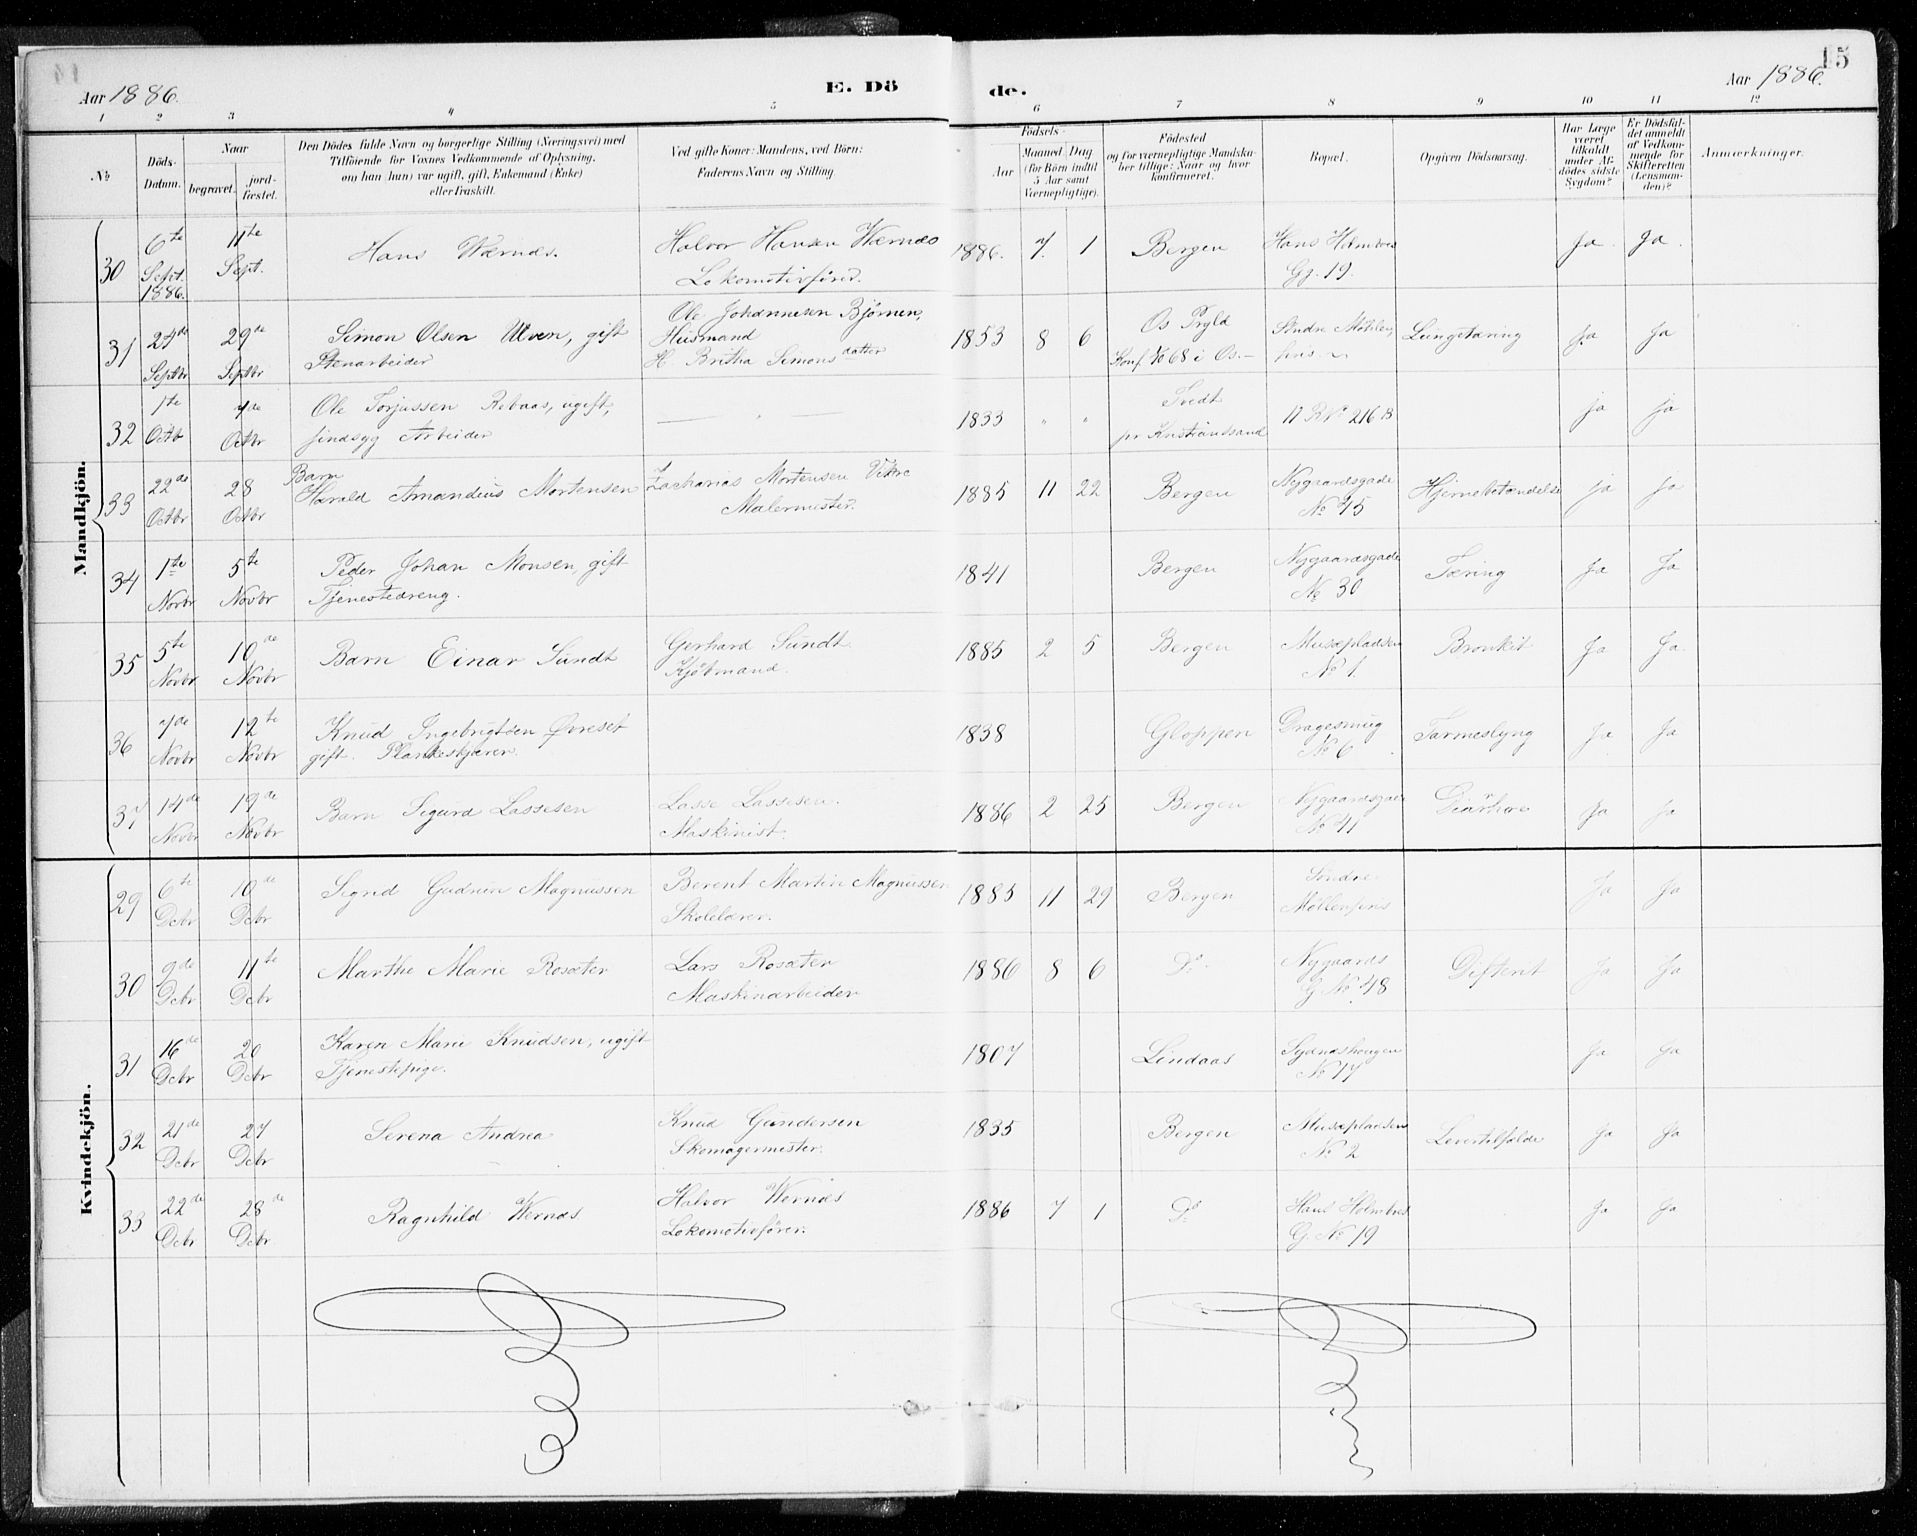 15
Aar 1886. E. Dö de. Aar 1886.
1 2 3 4 5 6 7 8 9 10 11 12
№
Döds-Datum.
Naar
begravet.
jordfæstet.
Den Dödes fulde Navn og borgerlige Stilling (Næringsvei) med
Tilföiende for Voxnes Vedkommende af Oplysning,
om han (hun) var ugift, gift, Enkemand (Enke)
eller fraskilt.
Ved gifte Koner: Mandens, ved Börn:
Faderens Navn og Stilling.
Födsels-
Aar
Maaned Dag
(for Börn indtil
5 Aar samt
Værnepligtige).
Födested
og for værnepligtige Mandskaber tillige: Naar og hvor
konfirmeret.
Bopæl.
Opgiven Dödsaarsag.
Har Læge
været
tilkaldt
under Afdödes sidste
Sygdom?
Er Dödsfaldet anmeldt
af Vedkommende for
Skifteretten
(Lensmanden)?
Anmærkninger.
Mandkjön.
30 6te Sept. 1886. 11te Sept. Hans Wærnes. Halvor Hansen Wærnes Lokomotivfører. 1886. 7. 1 Bergen Hans Holmboes Gg. 19. Ja. Ja.
31 24de Septbr 29de Septbr Simon Olsen Ulven, gift Stenarbeider Ole Johannesen Bjørnen, Husmand H. Britha Simonsdatter 1853 8 6 Os Prgld Konf. 1868 i Os.— Søndre Møhlenpris Lungetæring Ja Ja
32 1te Octb 7de Octbr Ole Torjussen Rebaas, ugift, sindsyg Arbeider — " — 1833 " " Tvedt pr Kristiansand 17 R No 216 B ja ja
33 22de Octbr 28 Octbr Barn Harald Amandus Mortensen Zacharias Mortensen Vikre Malermester. 1885 11 22 Bergen Nygaardsgade No 45 Hjernebetændelse ja ja
34 1te Novbr 5te Novbr Peder Johan Monsen, gift Tjenestedreng. 1841 Bergen Nygaardsgade No 30 Tæring Ja Ja
35 5te Novbr 10de Novbr Barn Einar Sundt Gerhard Sundt. Kjøbmand. 1885 2 5 Bergen Musæpladsen No 1. Bronkit Ja Ja.
36 7de Novbr 12te Novbr Knud Ingebrigtsen Øvreset gift. Plankeskjærer. 1838 Gloppen Dragesmug No 6 Tarmeslyng Ja Ja
37 14de Novbr 19de Novbr Barn Sigurd Lassesen Lasse Lassesen. Maskinist. 1886 2 25 Bergen Nygaardsgade No 41 Diarrhoe Ja Ja
Kvindekjön.
29 6te Dcbr 10de Dcbr Sigrid Gudrun Magnussen Berent Martin Magnussen Skolelærer. 1885 11 29 Bergen Søndre Møllenpris Ja Ja
30 9de Dcbr 11te Dcbr Marthe Marie Rosæter Lars Rosæter Maskinarbeider 1886 8 6 Do Nygaards G. No 48 Difterit Ja Ja
31 16de Dcbr 20 Dcbr Karen Marie Knudsen, ugift Tjenestepige. 1807 Lindaas Sydnæshougen No 17 Ja Ja
32 21de Dcbr 27 Dcbr Serena Andrea Knud Gundersen Skomagermester. 1835 Bergen Musæpladsen No 2 Levertilfælde Ja Ja
33 22de Dcbr 28de Dcbr Ragnhild Wernæs Halvor Wernæs Lokomotivfører. 1886 7 1 Do Hans Holmboes G. No 19 Ja Ja